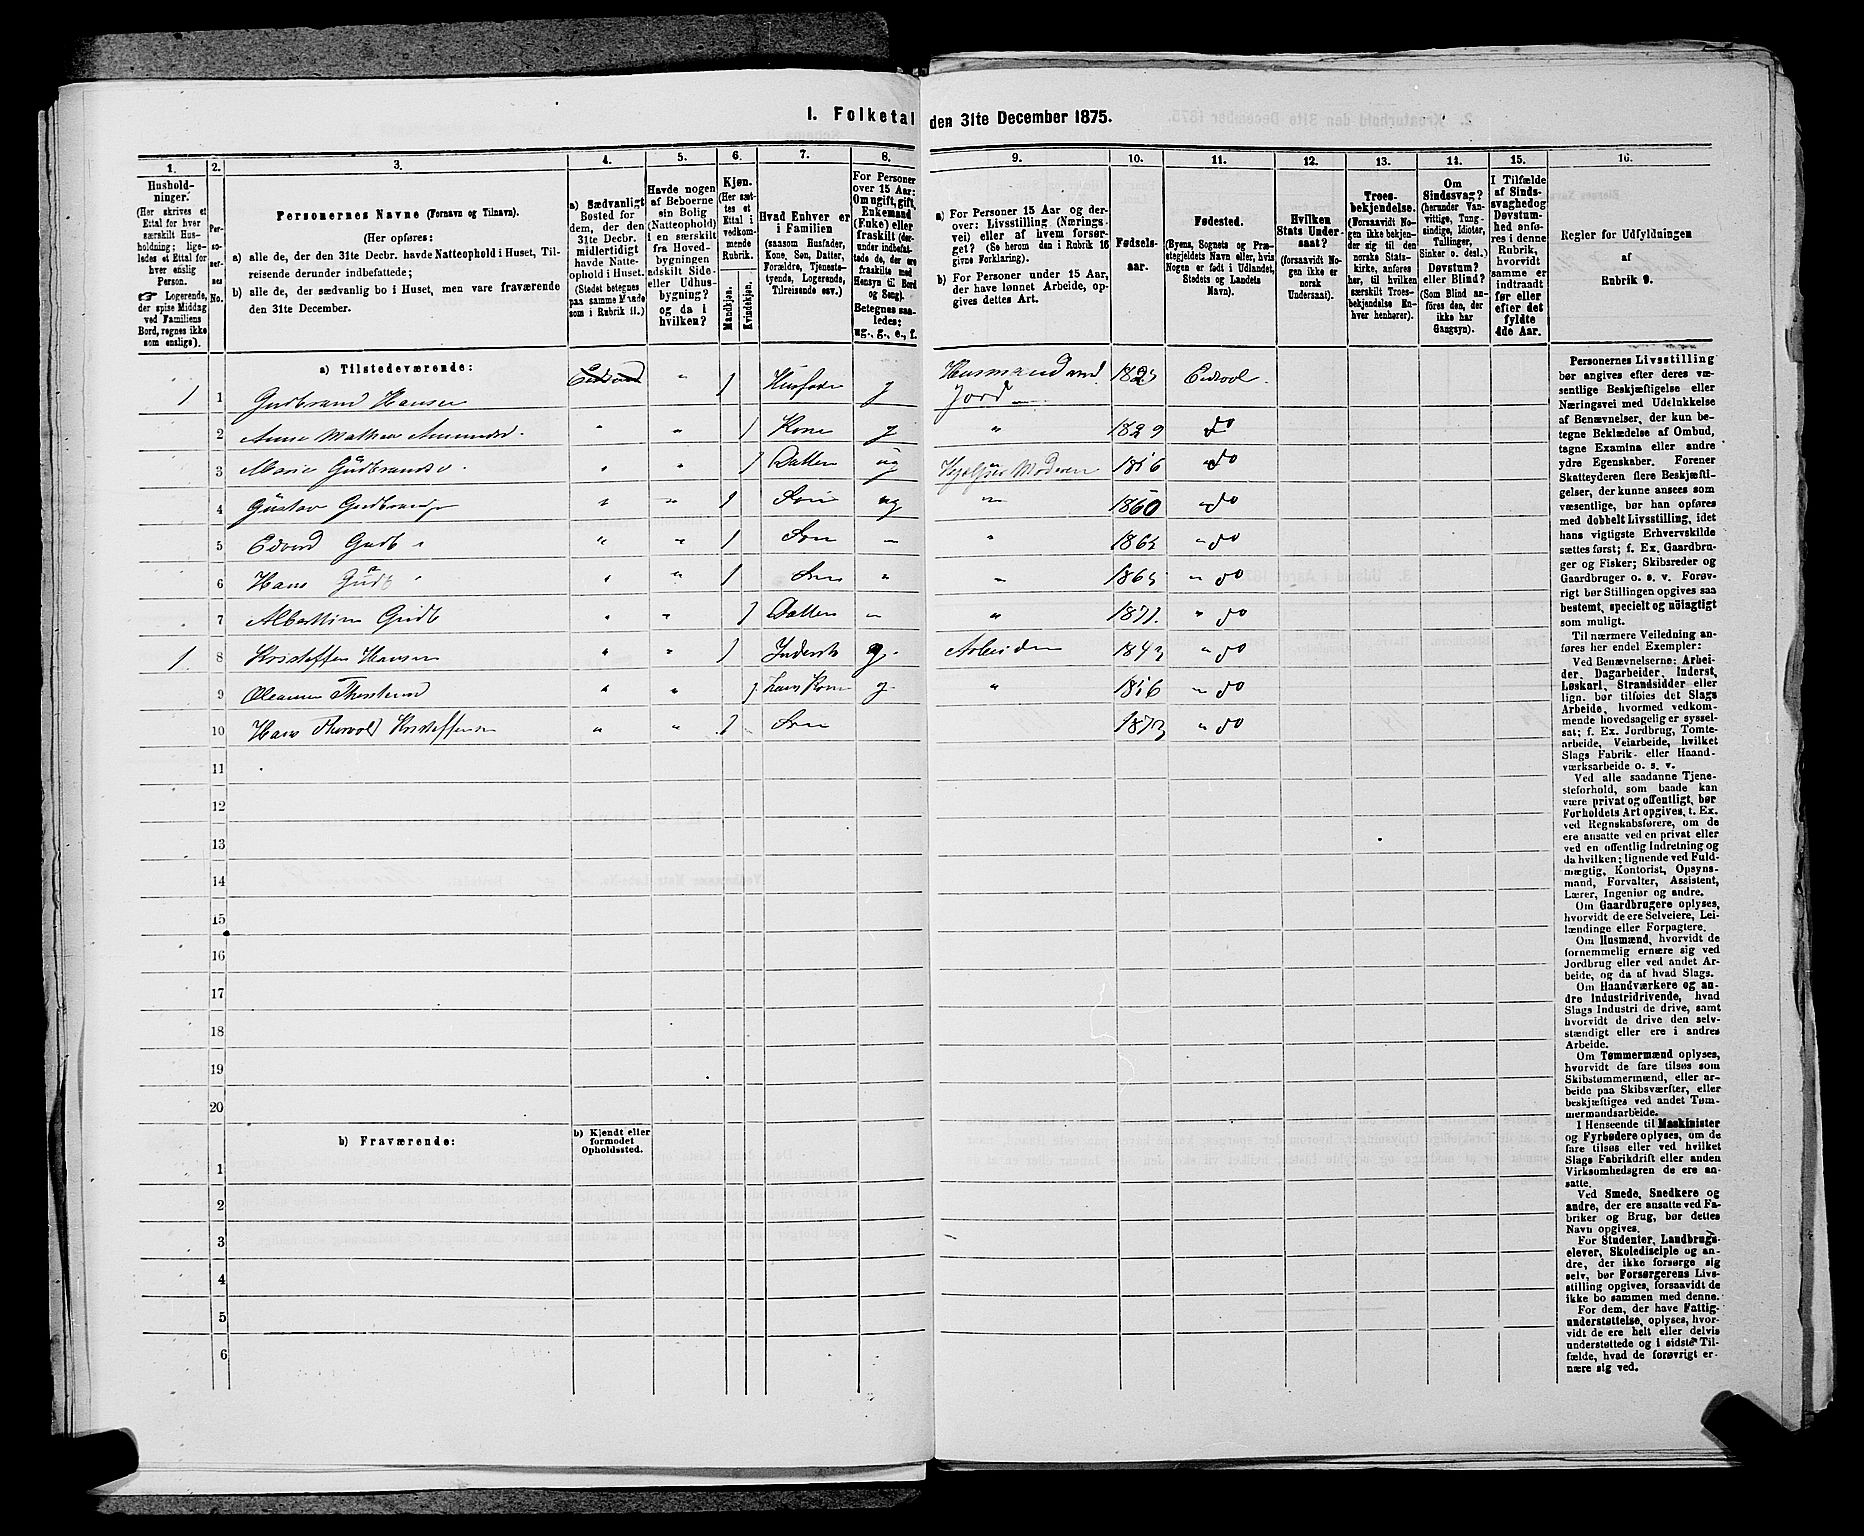 I. Folketal den 31te December 1875.
1. 2. 3. 4. 5. 6. 7. 8. 9. 10. 11. 12. 13. 14. 15. 16.
Hushold-
ninger.
(Her skrives et
Ettal for hver
særskilt Hus-
holdning; lige-
ledes et Ettal for
hver enslig
Person.
☞ Logerende,
der spise Middag
ved Familiens
Bord, regnes ikke
som enslige).
Per-
so-
ner-
nes
No.
Personernes Navne (Fornavn og Tilnavn).
(Her opføres:
a) alle de, der den 31te Decbr. havde Natteophold i Huset, Til-
reisende derunder indbefattede;
b) alle de, der sædvanlig bo i Huset, men vare fraværende
den 31te December.
a) Sædvanligt
Bosted for
dem, der den
31te Decbr.
midlertidigt
havde Natte-
ophold i Huset.
(Stedet betegnes
paa samme Maade
som i Rubrik 11.)
Havde nogen
af Beboerne
sin Bolig
(Natteophold)
i en særskilt
fra Hoved-
bygningen
adskilt Side-
eller Udhus-
bygning?
og da i
hvilken?
Kjøn.
(Her sæt-
tes et
Ettal i
vedkom-
mende
Rubrik.
Mandkjøn.
Kvindekjøn.
Hvad Enhver er
i Familien
(saasom Husfader,
Kone, Søn, Datter,
Forældre, Tjeneste-
tyende, Logerende,
Tilreisende osv.)
For Personer
over 15 Aar:
Om ugift, gift,
Enkemand
(Enke) eller
fraskilt (der-
under indbefat-
tede de, der ere
fraskilte med
Hensyn til Bord
og Seng).
Betegnes saa-
ledes:
ug., g., e., f.
a) For Personer 15 Aar og der-
over: Livsstilling (Nærings-
vei) eller af hvem forsør-
get? (Se herom den i Rubrik 16
givne Forklaring).
b) For Personer under 15 Aar,
der have lønnet Arbeide, op-
gives dettes Art.
Fødsels-
aar.
Fødested.
(Byens, Sognets og Præ-
stegjeldets Navn eller, hvis
Nogen er født i Udlandet,
Stedets og Landets
Navn).
Hvilken
Stats Under-
saat?
(forsaavidt No-
gen ikke er
norsk
Undersaat).
Troes-
bekjendelse.
(Forsaavidt No-
gen ikke bekjen-
der sig til den
norske Stats-
kirke, anføres
her, til hvilken
særskilt Troes-
bekjendelse En-
hver henhører).
Om
Sindssvag?
(herunder Van-
vittige, Tung-
sindige, Idioter,
Tullinger,
Sinker o. desl.)
Døvstum?
eller Blind?
(Som Blind an-
føres den, der
ikke har
Gangsyn).
I Tilfælde
af Sinds-
svaghed og
Døvstum-
hed anfø-
res i denne
Rubrik,
hvorvidt
samme er
indtraadt
før eller
efter det
fyldte
4de Aar.
Regler for Udfyldningen
af
Rubrik 9.
a) Tilstedeværende:
1 1 Gudbrand Hansen Eidsvol " 1 Husfader g Husmand med Jord 1825 Eidsvol.
2 Anne " " 1 Kone g " 1829 do
3 Marie Gudbrandsd. " " 1 Datter ug Hjælper Moderen 1856 " do
4 Gustav Gudbrands " " 1 Søn ug " 1860 " do
5 Edvard Gudb " " 1 Søn " " " do
6 Hans Gudb " " 1 Søn " " 1865 " do
7 Gudb " " 1 Datter " " 1871 " do
1 8 Kristoffer Hansen " " 1 Inderst g. Arbeider 1843 " do
9 " " 1 hans Kone g " 1846 " do
10 Hans Thorvald Kristoffersen " " 1 Søn 1873 " do
11
12
13
14
15
16
17
18
19
20
b) Fraværende:
b) Kjendt eller
formodet
Opholdssted.
1
2
3
4
5
6
Personernes Livsstilling
bør angives efter deres væ-
sentlige Beskjæftigelse eller
Næringsvei med Udelukkelse
af Benævnelser, der kun be-
tegne Beklædelse af Ombud,
tagne Examina eller andre
ydre Egenskaber. Forener
Skatteyderen flere Beskjæfti-
gelser, der kunne ansees som
væsentlige, bør han opføres
med dobbelt Livsstilling, idet
hans vigtigste Erhvervskilde
sættes først; f. Ex. Gaardbru-
ger og Fisker; Skibsreder og
Gaardbruger o. s. v. Forøv-
rigt bør Stillingen opgives saa
bestemt, specielt og nöiagtigt
som muligt.
Til nærmere Veiledning an-
føres her endel Exempler:
Ved Benævnelserne: Arbei-
der, Dagarbeider, Inderst,
Løskarl, Strandsidder eller
lign. bør tilføies det Slags
Arbeide, hvormed vedkom-
mende hovedsagelig er syssel-
sat; f. Ex. Jordbrug, Tomte-
arbeide, Veiarbeide, hvilket
Slags Fabrik- eller Haand-
værksarbeide o. s. v.
Ved alle saadanne Tjene-
steforhold, som baade kan
være privat og offentligt, bør
Forholdets Art opgives, t. Ex.
ved Regnskabsførere, om de
ere ansatte ved en privat eller
ved en offentlig Indretning og
da hvilken; lignende ved Fuld-
mægtig, Kontorist, Opsyns-
mand, Forvalter, Assistent,
Lærer, Ingeniør og andre.
Om Gaardbrugere oplyses,
hvorvidt de ere Selveiere, Lei-
lændinge eller Forpagtere.
Om Husmænd, hvorvidt de
fornemmelig ernære sig ved
Jordbrug eller ved andet Ar-
beide, og da af hvad Slags.
Om Haandværkere og an-
dre Industridrivende, hvad
Slags Industri de drive, samt
hvorvidt de drive den selv-
stændigt eller ere i andres
Arbeide.
Om Tømmermænd oplyses,
hvorvidt de fare tilsøs som
Skibstømmermænd, eller ar-
beide paa Skibsværfter, eller
beskjæftiges ved andet Tøm-
mermandsarbeide.
I Henseende til Maskinister
og Fyrbødere oplyses, om de
fare tilsøs eller ved hvilket
Slags Fabrikdrift eller anden
Virksomhedsgren de ere an-
satte.
Ved Smede, Snedkere og
andre, der ere ansatte ved Fa-
briker og Brug, bør dettes
Navn opgives.
For Studenter, Landbrugs-
elever, Skoledisciple og an-
dre, der ikke forsørge sig
selv, bør Forsørgerens Livs-
stilling opgives, forsaavidt de
ikke bo sammen med denne.
For dem, der have Fattig-
understøttelse, oplyses, hvor-
vidt de ere helt eller delvis
understøttede og i sidste Til-
fælde, hvad de forøvrigt er-
nære sig ved.